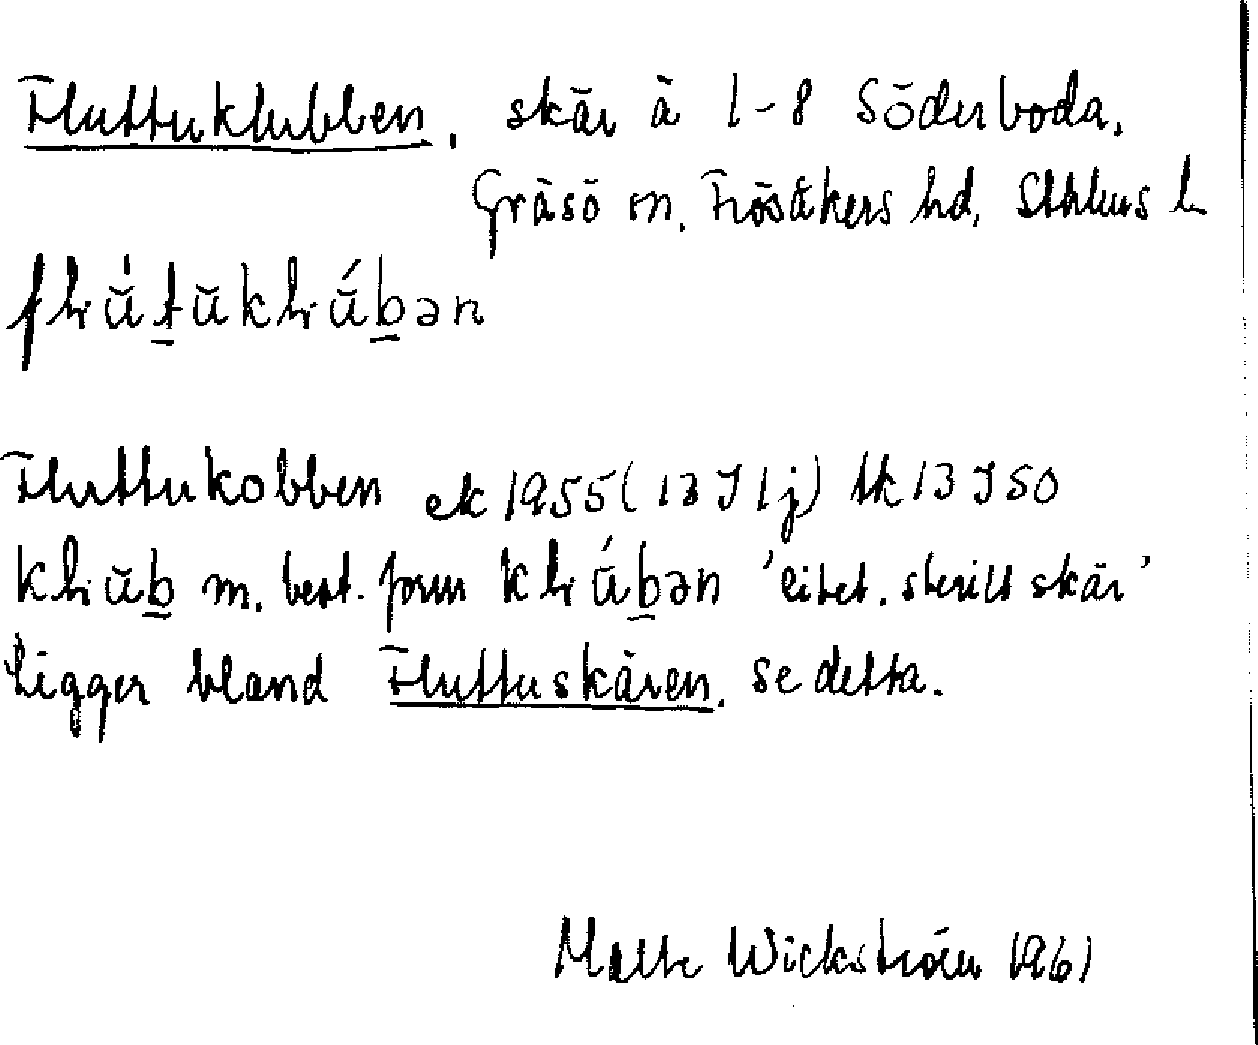 Fluttuklubben, skär å 1-8 Söderboda,
Gräsö sn, Frösåkers hd, Sthlms l
flŭ́t̲ŭklŭ́b̲ən
Fluttukobben ek 1955 (13 I 1j) tk 13 I SO
klŭb̲ m. best. form klŭ́b̲ən 'litet, sterilt skär'
Ligger bland Fluttuskären. Se detta.
Wickström 1961